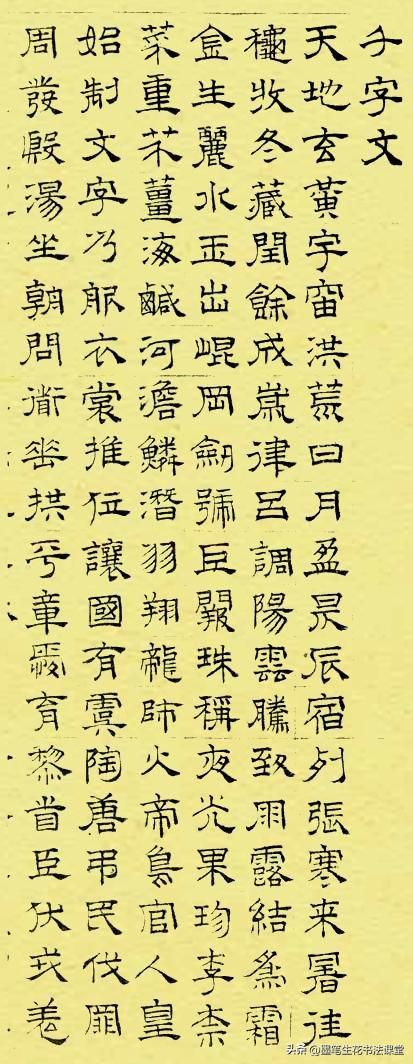 千字文
天地玄黃宇宙洪荒日月盈昃辰宿列張寒来暑往
穐收冬藏閏餘成歲律呂調陽雲騰致雨露結爲霜
金生麗水玉出崐岡劒號巨闕珠稱夜光果珍李柰
菜重芥薑海鹹河澹鱗潛羽翔龍師火帝鳥官人皇
始制文字乃服衣裳推位讓國有虞陶唐弔民伐罪
周發殷湯坐朝問道垂拱平章愛育黎首臣伏戎羌
头条 @墨笔生花书法课堂